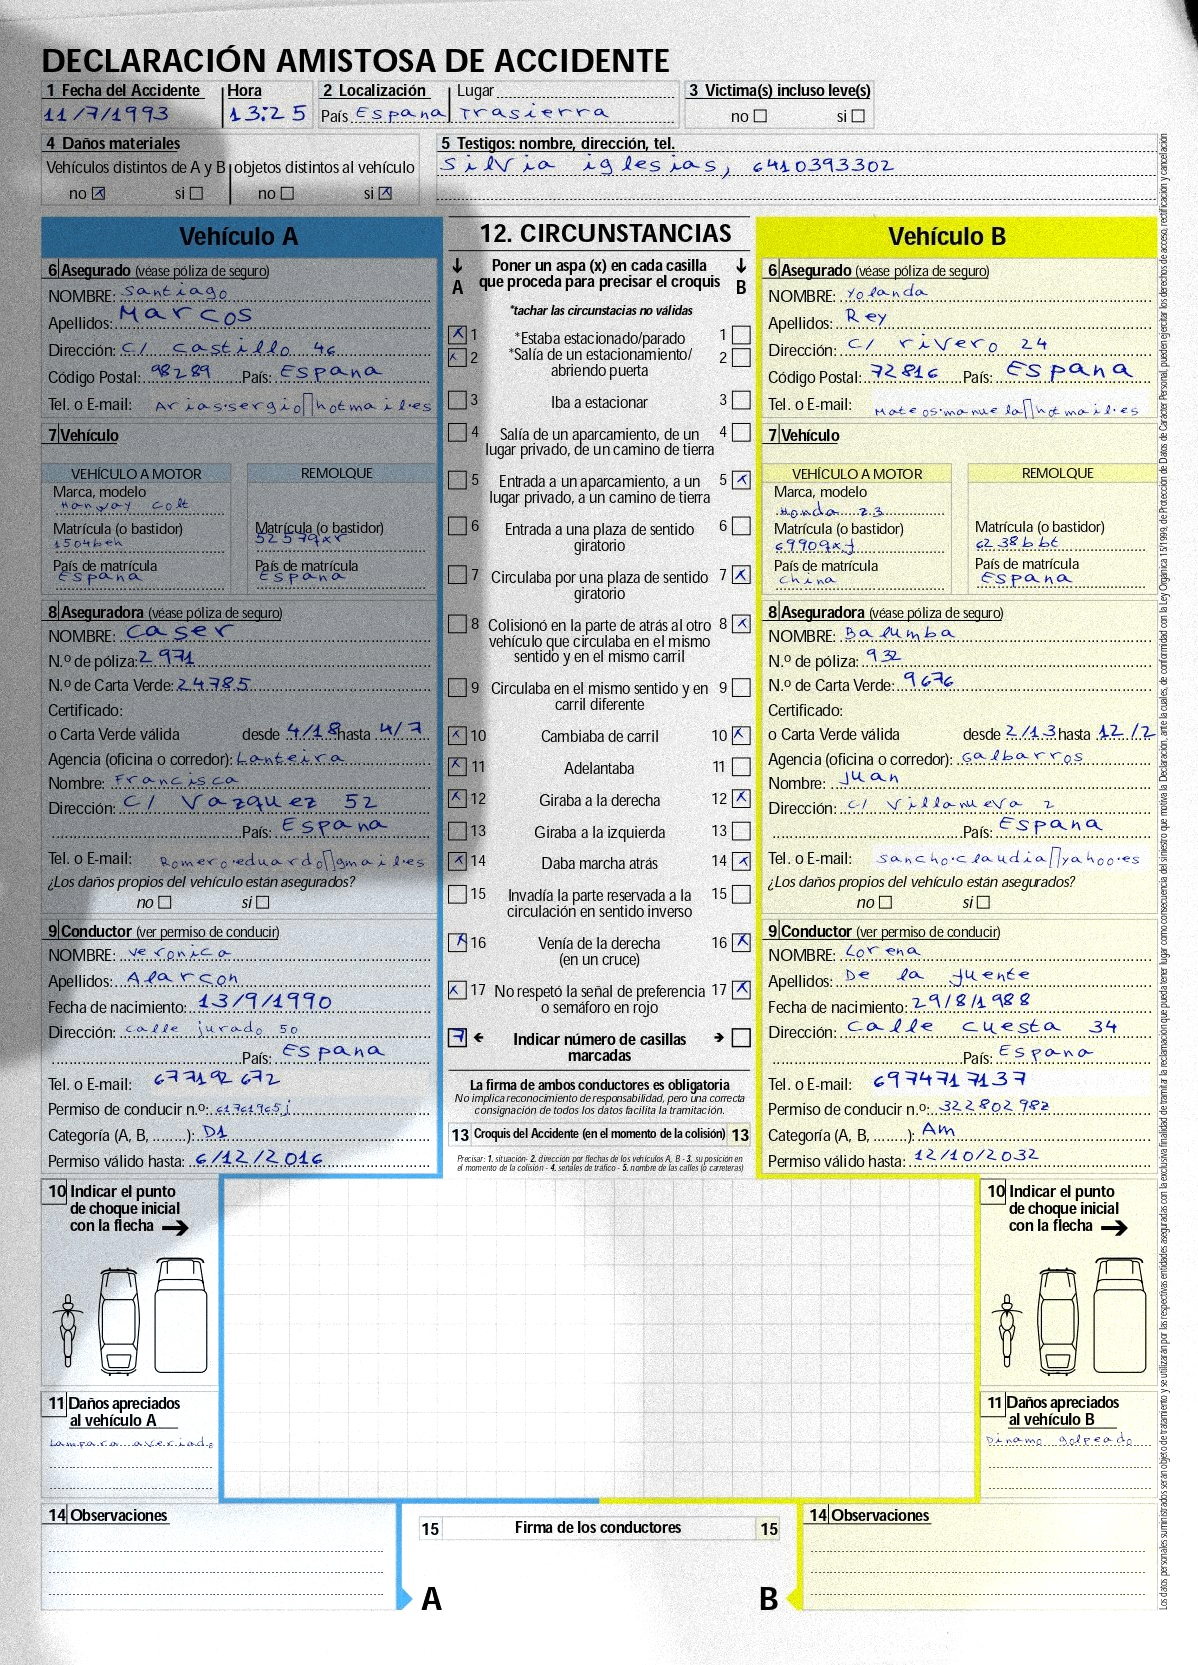 DECLARACIÓN AMISTOSA DE ACCIDENTE
1 Fecha del Accidente Hora 2 Localización Lugar 3 Victima(s) incluso leve(s)
11/7/1993 13:25 País Espana Trasierra no si
4 Daños materiales 5 Testigos: nombre, dirección, tel.
Vehículos distintos de A y B objetos distintos al vehículo Silvia iglesias, 6410393302
no x si no si x
Vehículo A
6 Asegurado (véase póliza de seguro)
NOMBRE: Santiago
Apellidos: Marcos
Dirección: C/ castillo 46
Código Postal: 98289 País: Espana
Tel. o E-mail: Arias.sergio▯hotmail.es
7 Vehículo
VEHÍCULO A MOTOR REMOLQUE
Marca, modelo
Hanway colt
Matrícula (o bastidor) Matrícula (o bastidor)
1504beh 52579xr
País de matrícula País de matrícula
Espana Espana
8 Aseguradora (véase póliza de seguro)
NOMBRE: caser
N.º de póliza: 2971
N.º de Carta Verde: 24785
Certificado:
o Carta Verde válida desde 4/18 hasta 4/7
Agencia (oficina o corredor): Lanteira
Nombre: Francisca
Dirección: C/ Vazquez 52
País: Espana
Tel. o E-mail: Romero.eduardo▯gmail.es
¿Los daños propios del vehículo están asegurados?
no si
9 Conductor (ver permiso de conducir)
NOMBRE: Veronica
Apellidos: Alarcon
Fecha de nacimiento: 13/9/1990
Dirección: calle jurado 50
País: Espana
Tel. o E-mail: 677192672
Permiso de conducir n.º: 61761965j
Categoría (A, B, ........): D1
Permiso válido hasta: 6/12/2016
12. CIRCUNSTANCIAS
A Poner un aspa (x) en cada casilla que proceda para precisar el croquis B
*tachar las circunstacias no validas
x 1 *Estaba estacionado/parado 1
x 2 *Salía de un estacionamiento/ 2
abriendo puerta
3 Iba a estacionar 3
4 Salía de un aparcamiento, de un 4
lugar privado, de un camino de tierra
5 Entrada a un aparcamiento, a un 5 x
lugar privado, a un camino de tierra
6 Entrada a una plaza de sentido 6
giratorio
7 Circulaba por una plaza de sentido 7 x
giratorio
8 Colisionó en la parte de atrás al otro 8 x
vehículo que circulaba en el mismo
sentido y en el mismo carril
9 Circulaba en el mismo sentido y en 9
carril diferente
x 10 Cambiaba de carril 10 x
x 11 Adelantaba 11
x 12 Giraba a la derecha 12 x
13 Giraba a la izquierda 13
x 14 Daba marcha atrás 14 x
15 Invadía la parte reservada a la 15
circulación en sentido inverso
x 16 Venía de la derecha 16 x
(en un cruce)
x 17 No respetó la señal de preferencia 17 x
o semáforo en rojo
7 Indicar número de casillas
marcadas
La firma de ambos conductores es obligatoria
No implica reconocimiento de responsabilidad, pero una correcta
consignación de todos los datos facilita la tramitación.
13 Croquis del Accidente (en el momento de la colisión) 13
Precisar: 1. situación- 2. dirección por flechas de los vehículos A, B - 3. su posición en
el momento de la colisión - 4. señales de tráfico - 5. nombre de las calles (o carreteras)
Vehículo B
6 Asegurado (véase póliza de seguro)
NOMBRE: Yolanda
Apellidos: Rey
Dirección: C/ rivero 24
Código Postal: 72816 País: Espana
Tel. o E-mail: Mateos.manuela▯hotmail.es
7 Vehículo
VEHÍCULO A MOTOR REMOLQUE
Marca, modelo
Honda z3
Matrícula (o bastidor) Matrícula (o bastidor)
6238bbt
País de matrícula País de matrícula
China Espana
8 Aseguradora (véase póliza de seguro)
NOMBRE: Balumba
N.º de póliza: 932
N.º de Carta Verde: 9676
Certificado:
o Carta Verde válida desde 2/13 hasta 12/2
Agencia (oficina o corredor): Galbarros
Nombre: Juan
Dirección: C/ Villanueva 2
País: Espana
Tel. o E-mail: Sancho.claudia▯yahoo.es
¿Los daños propios del vehículo están asegurados?
no si
9 Conductor (ver permiso de conducir)
NOMBRE: Lorena
Apellidos: De la fuente
Fecha de nacimiento: 29/8/1988
Dirección: Calle cuesta 34
País: Espana
Tel. o E-mail: 6974717137
Permiso de conducir n.º: 32280298z
Categoría (A, B, ........): Am
Permiso válido hasta: 12/10/2032
10 Indicar el punto
de choque inicial
con la flecha
11 Daños apreciados
al vehículo A
Lampara averiado
10 Indicar el punto
de choque inicial
con la flecha
11 Daños apreciados
al vehículo B
Dinamo golpeado
14 Observaciones
15 Firma de los conductores 15
A B
14 Observaciones